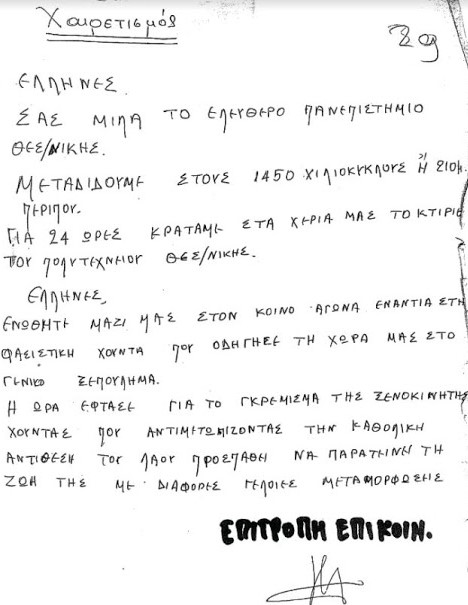 Χαιρετισμός
ΕΛΛΗΝΕΣ.
ΣΑΣ ΜΙΛΑ ΤΟ ΕΛΕΥΘΕΡΟ ΠΑΝΕΠΙΣΤΗΜΙΟ
ΘΕΣ/ΝΙΚΗΣ.
ΜΕΤΑΔΙΔΟΥΜΕ ΣΤΟΥΣ 1450 ΧΙΛΙΟΚΥΚΛΟΥΣ Ή 210μ.
ΠΕΡΙΠΟΥ.
ΓΙΑ 24 ΩΡΕΣ ΚΡΑΤΑΜΕ ΣΤΑ ΧΕΡΙΑ ΜΑΣ ΤΟ ΚΤΙΡΙΟ
ΤΟΥ ΠΟΛΥΤΕΧΝΕΙΟΥ ΘΕΣ/ΝΙΚΗΣ.
ΕΛΛΗΝΕΣ,
ΕΝΩΘΗΤΕ ΜΑΖΙ ΜΑΣ ΣΤΟΝ ΚΟΙΝΟ ΑΓΩΝΑ ΕΝΑΝΤΙΑ ΣΤΗ
ΦΑΣΙΣΤΙΚΗ ΧΟΥΝΤΑ ΠΟΥ ΟΔΗΓΗΣΕ ΤΗ ΧΩΡΑ ΜΑΣ ΣΤΟ
ΓΕΝΙΚΟ ΞΕΠΟΥΛΗΜΑ.
Η ΩΡΑ ΕΦΤΑΣΕ ΓΙΑ ΤΟ ΓΚΡΕΜΙΣΜΑ ΤΗΣ ΞΕΝΟΚΙΝΗΤΗΣ
ΧΟΥΝΤΑΣ ΠΟΥ ΑΝΤΙΜΕΤΩΠΙΖΟΝΤΑΣ ΤΗΝ ΚΑΘΟΛΙΚΗ
ΑΝΤΙΘΕΣΗ ΤΟΥ ΛΑΟΥ ΠΡΟΣΠΑΘΗ ΝΑ ΠΑΡΑΤΕΙΝΗ ΤΗ
ΖΩΗ ΤΗΣ ΜΕ ΔΙΑΦΟΡΕΣ ΓΕΛΟΙΕΣ ΜΕΤΑΜΟΡΦΩΣΕΙΣ
ΕΠΙΤΡΟΠΗ ΕΠΙΚΟΙΝ.